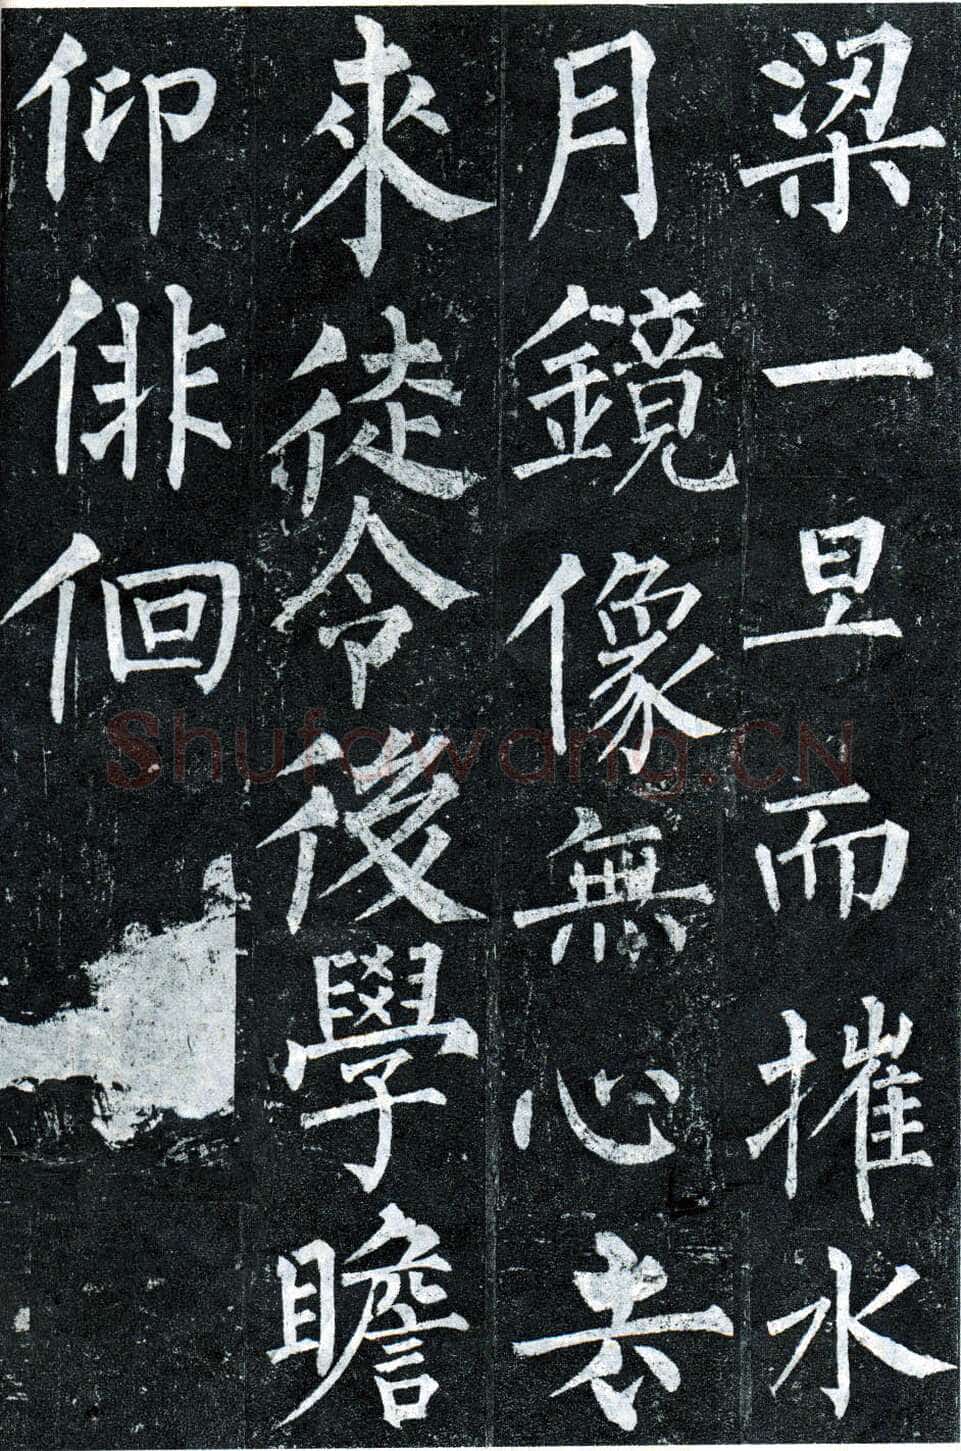 梁一旦而摧水
月鏡像無心去
來徒令後學瞻
仰俳佪
Shufawang.CN